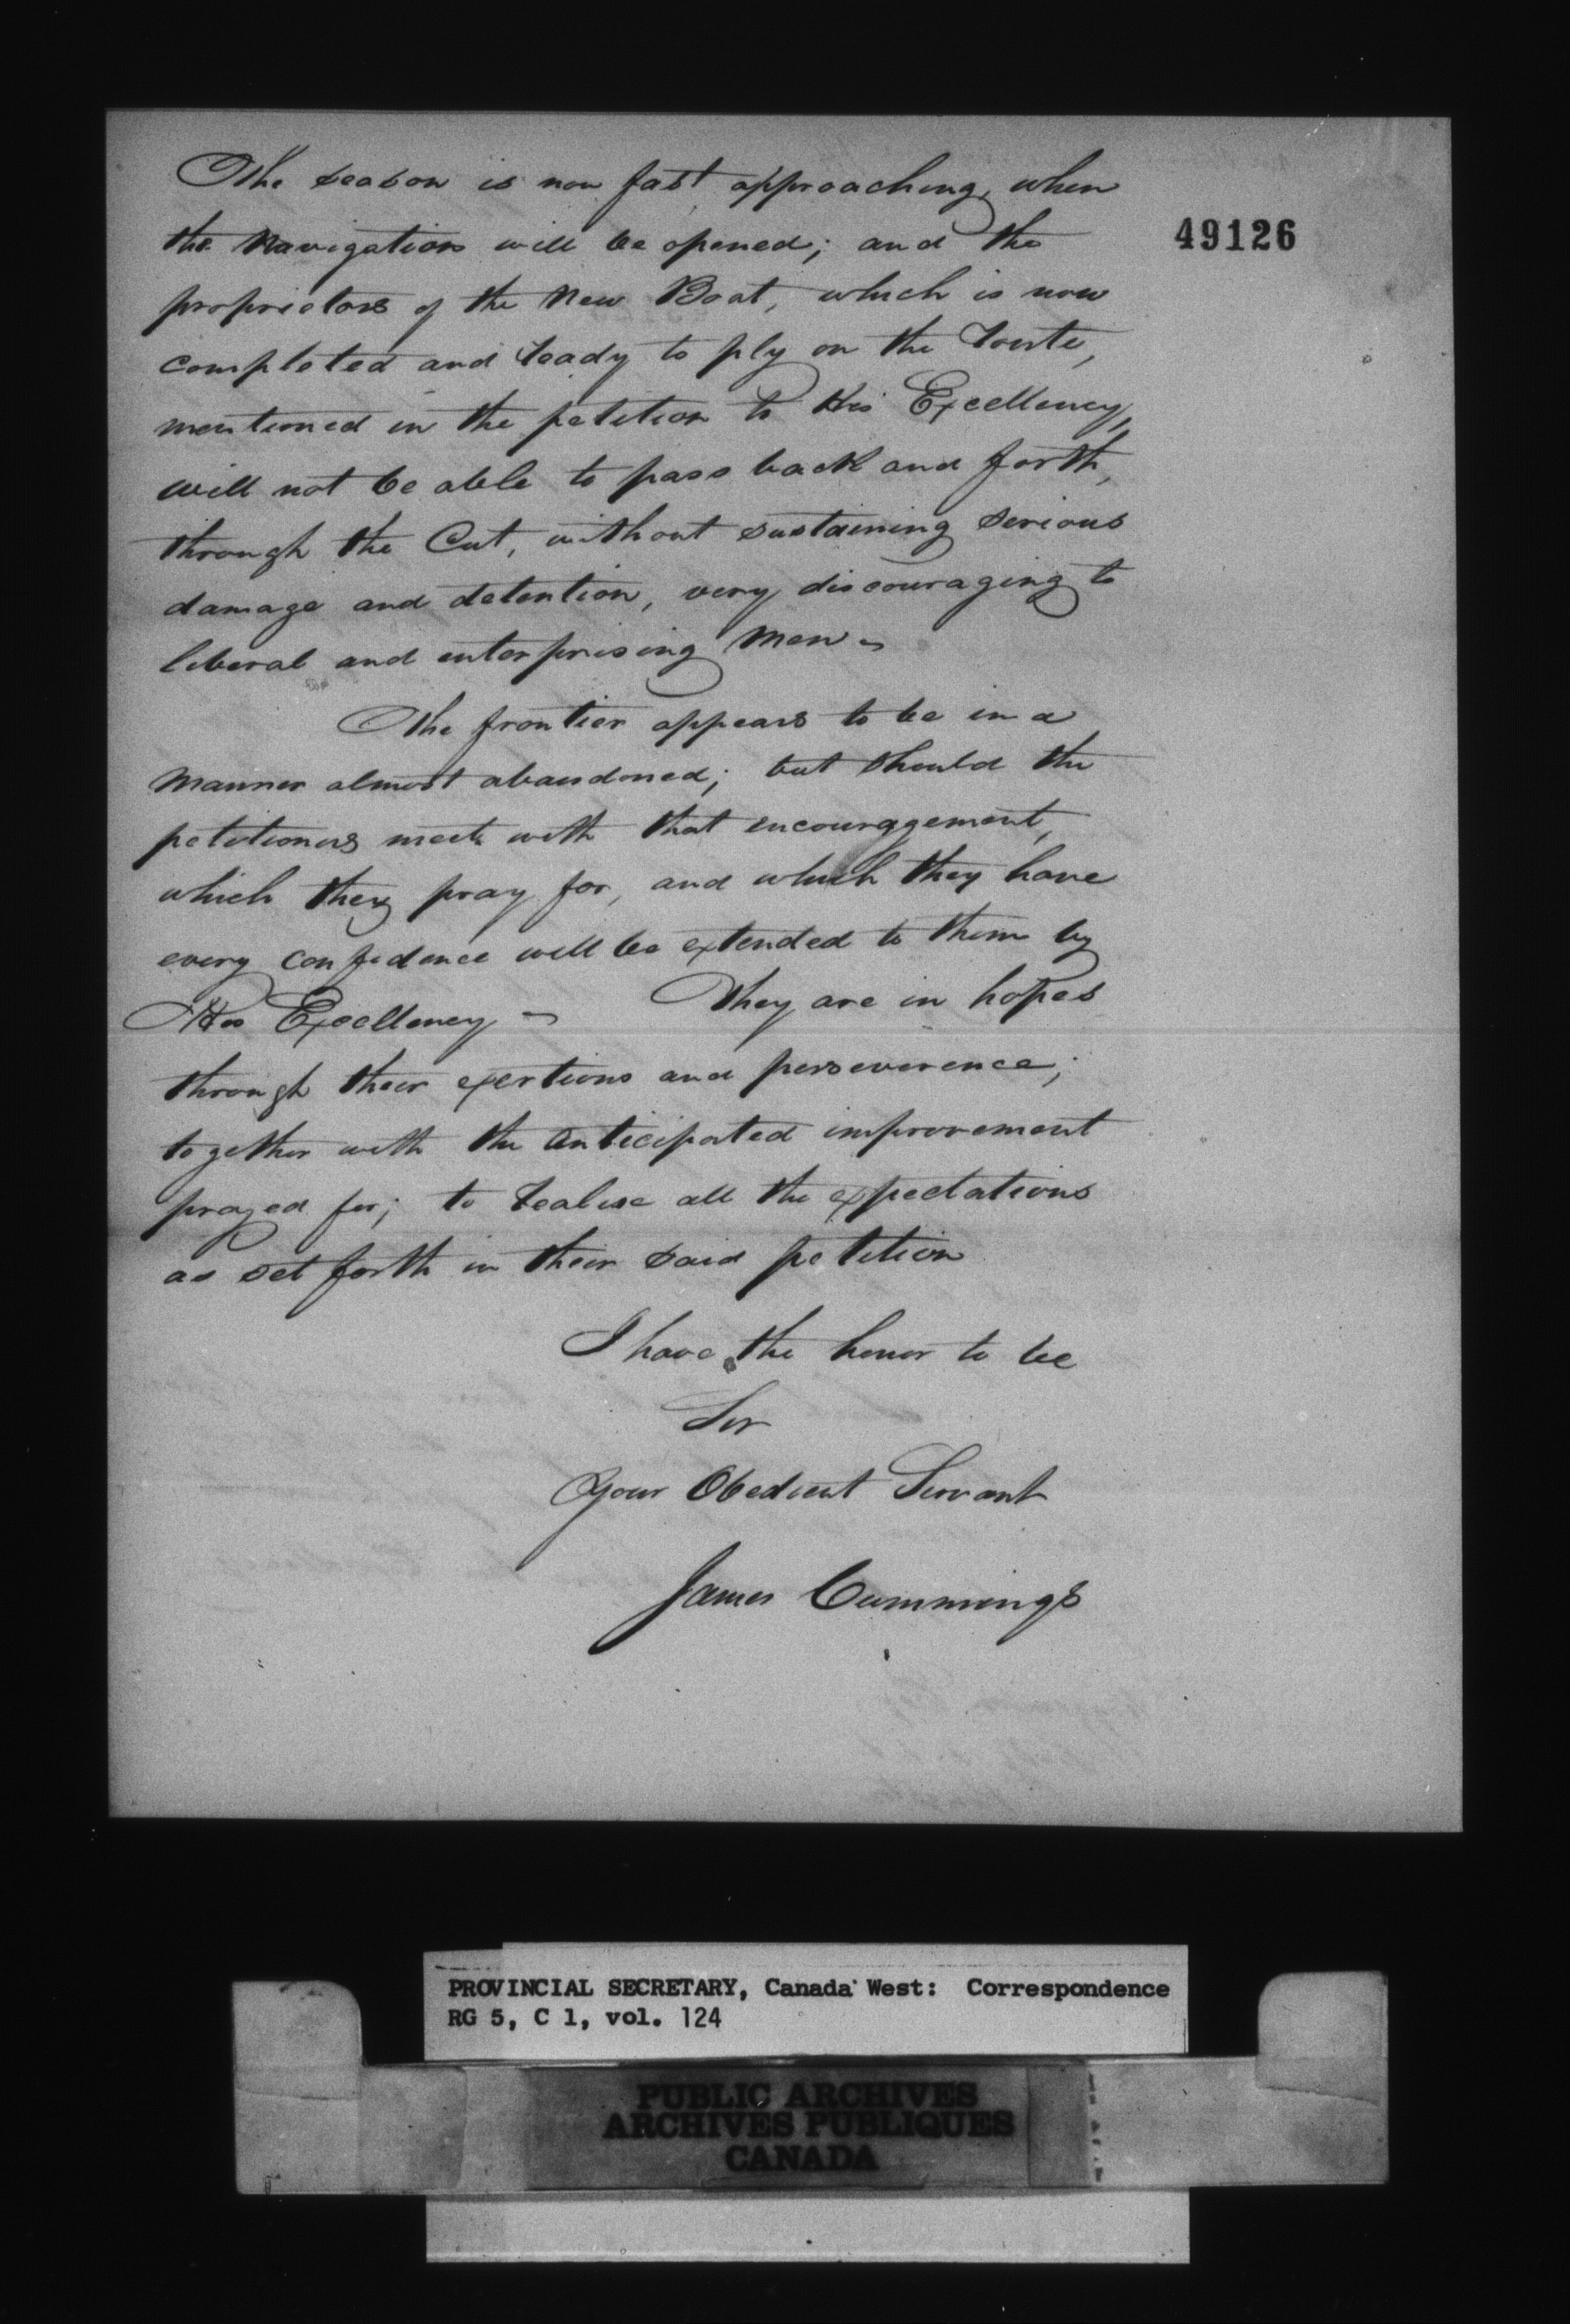 The season is now fast approaching, when
49126
the Navigation will be opened; and the
proprietors of the New Boat, which is now
completed and ready to ply on the route,
mentioned in the petition to His Excellency,
will not be able to pass back and forth,
through the Cut, without sustaining serious
damage and detention, very discouraging to
liberal and enterprising Men
The frontier appears to be in a
manner almost abandoned; but should the
petitioners meet with that encouragement,
which they pray for, and which they have
every confidence will be extended to them by
His Excellency – They are in hopes
through their exertions and perseverence;
together with the anticipated improvement
prayed for; to realise all the expectations
as set forth in their said petition
I have the honor to be
Sir
Your Obedient Servant
James Cummings
PROVINCIAL SECRETARY, Canada West: Correspondence
RG 5, C 1, vol. 124
PUBLIC ARCHIVES
ARCHIVES PUBLIQUES
CANADA